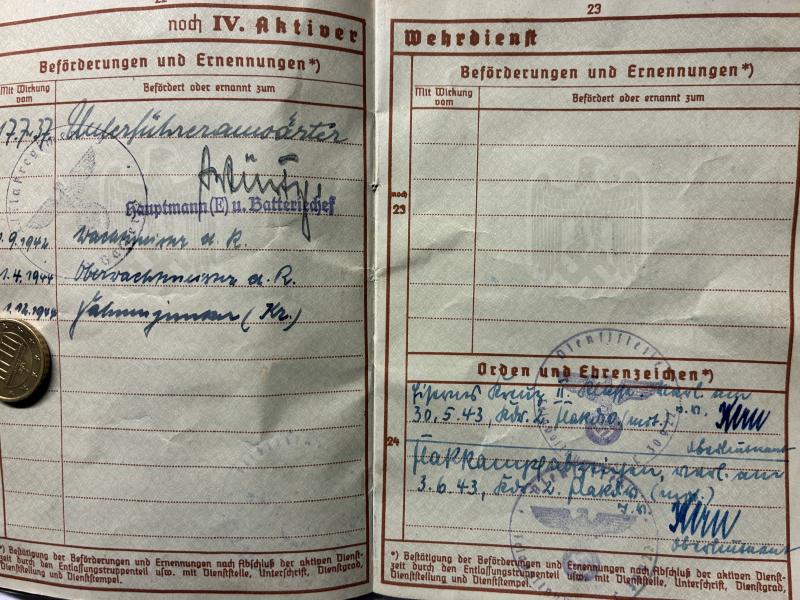 noch IV. Aktiver
Beförderungen und Ernennungen*)
Mit Wirkung
vom
Befördert oder ernannt zum
17.7.37 Unterführeranwärter
Hauptmann (E) u. Batteriechef
.9.1942 Wachtmeister d. R.
1.4.1944 Oberwachtmeister d. R.
1.12.1944 Fahnenjunker (Kr.)
*) Bestätigung der Beförderungen und Ernennungen nach Abschluß der aktiven Dienst-
zeit durch den Entlassungstruppenteil usw. mit Dienstgrad,
Dienststellung und Dienststempel.
23
Wehrdienst
Beförderungen und Ernennungen*)
Mit Wirkung
vom
Befördert oder ernannt zum
noch
23
Dienststelle
Orden und Ehrenzeichen*)
Eisernes Kreuz II. Klasse verl. am
30.5.43, Kdr. 2. Flakdiv. (mot.) I.V.
Oberleutnant
24
Flakkampfabzeichen, verl. am
3.6.43, Kdr. 2. Flakdiv. (mot.)
I.V.
Oberleutnant
*) Bestätigung der Beförderungen und Ernennungen nach Abschluß der aktiven Dienst-
zeit durch den Entlassungstruppenteil usw. mit Dienststelle, Unterschrift, Dienstgrad,
Dienststellung und Dienststempel.